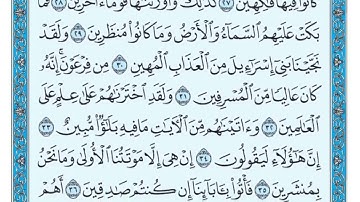 كَانُوا۟ فِيهَا فَٰكِهِينَ ٢٧ كَذَٰلِكَ وَأَوْرَثْنَٰهَا قَوْمًا ءَاخَرِينَ ٢٨ فَمَا
بَكَتْ عَلَيْهِمُ ٱلسَّمَآءُ وَٱلْأَرْضُ وَمَا كَانُوا۟ مُنظَرِينَ ٢٩ وَلَقَدْ
نَجَّيْنَا بَنِىٓ إِسْرَٰٓءِيلَ مِنَ ٱلْعَذَابِ ٱلْمُهِينِ ٣٠ مِن فِرْعَوْنَ إِنَّهُۥ
كَانَ عَالِيًا مِّنَ ٱلْمُسْرِفِينَ ٣١ وَلَقَدِ ٱخْتَرْنَٰهُمْ عَلَىٰ عِلْمٍ عَلَى
ٱلْعَٰلَمِينَ ٣٢ وَءَاتَيْنَٰهُم مِّنَ ٱلْءَايَٰتِ مَا فِيهِ بَلَٰٓؤٌا۟ مُّبِينٌ ٣٣
إِنَّ هَٰٓؤُلَآءِ لَيَقُولُونَ ٣٤ إِنْ هِىَ إِلَّا مَوْتَتُنَا ٱلْأُولَىٰ وَمَا نَحْنُ
بِمُنشَرِينَ ٣٥ فَأْتُوا۟ بِـَٔابَآئِنَآ إِن كُنتُمْ صَٰدِقِينَ ٣٦ أَهُمْ